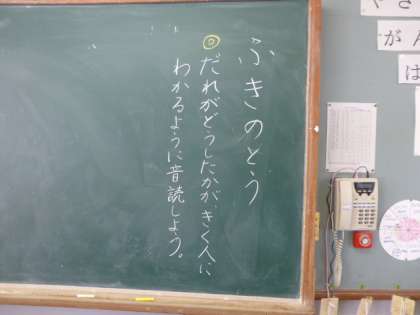 ふきのとう
◎だれがどうしたかが、きく人に
わかるように音読しよう。
やさ
がん
は